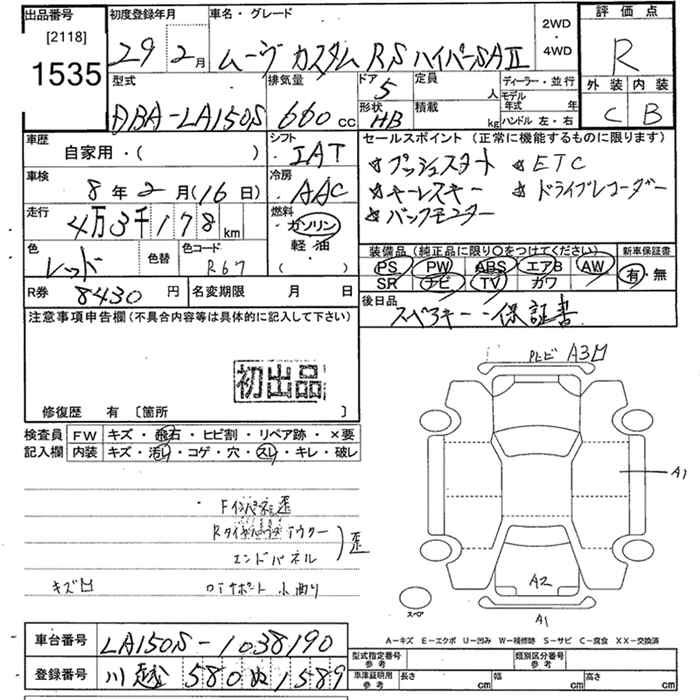 出品番号 初度登録年月 車名・グレード 2WD・4WD 評価点
[2118]
1535
29年2月 ムーヴ カスタム RS ハイパーSAⅡ R
外装 内装
C B
型式 排気量 ドア 定員 ディーラー・並行
DBA-LA150S 660cc 5 人 モデル年式 年
形状 積載 kg ハンドル 左・右
HB
車歴 自家用・( )
シフト IAT
セールスポイント (正常に機能するものに限ります)
☆プッシュスタート ☆ETC
☆キーレスキー ☆ドライブレコーダー
☆バックモニター
車検 8年2月(16日)
冷房 AAC
走行 4万3千178km
燃料 ガソリン 軽油・( )
色 レッド 色替 色コード R67
装備品 (純正品に限り○をつけてください) 新車保証書
PS PW ABS エアB AW 有・無
SR ナビ TV カワ
R券 8430円 名変期限 月 日
後日品 スペアキー・保証書
注意事項申告欄 (不具合内容等は具体的に記入して下さい)
初出品
修復歴 有 〔箇所 〕
検査員記入欄 FW キズ・飛石・ヒビ割・リペア跡・×要
内装 キズ・汚れ・コゲ・穴・スレ・キレ・破レ
・Fインパネ歪
エンドパネル 歪
キズ凹
A3凹
A1
A2
スペア
A1
A-キズ E-エクボ U-凹み W-補修跡 S-サビ C-腐食 XX-交換済
車台番号 LA150S-1038190
登録番号 川越 580 ぬ 1589
型式指定番号 参考 類別区分番号 参考
車庫証明用 参考 長さ cm 幅 cm 高さ cm